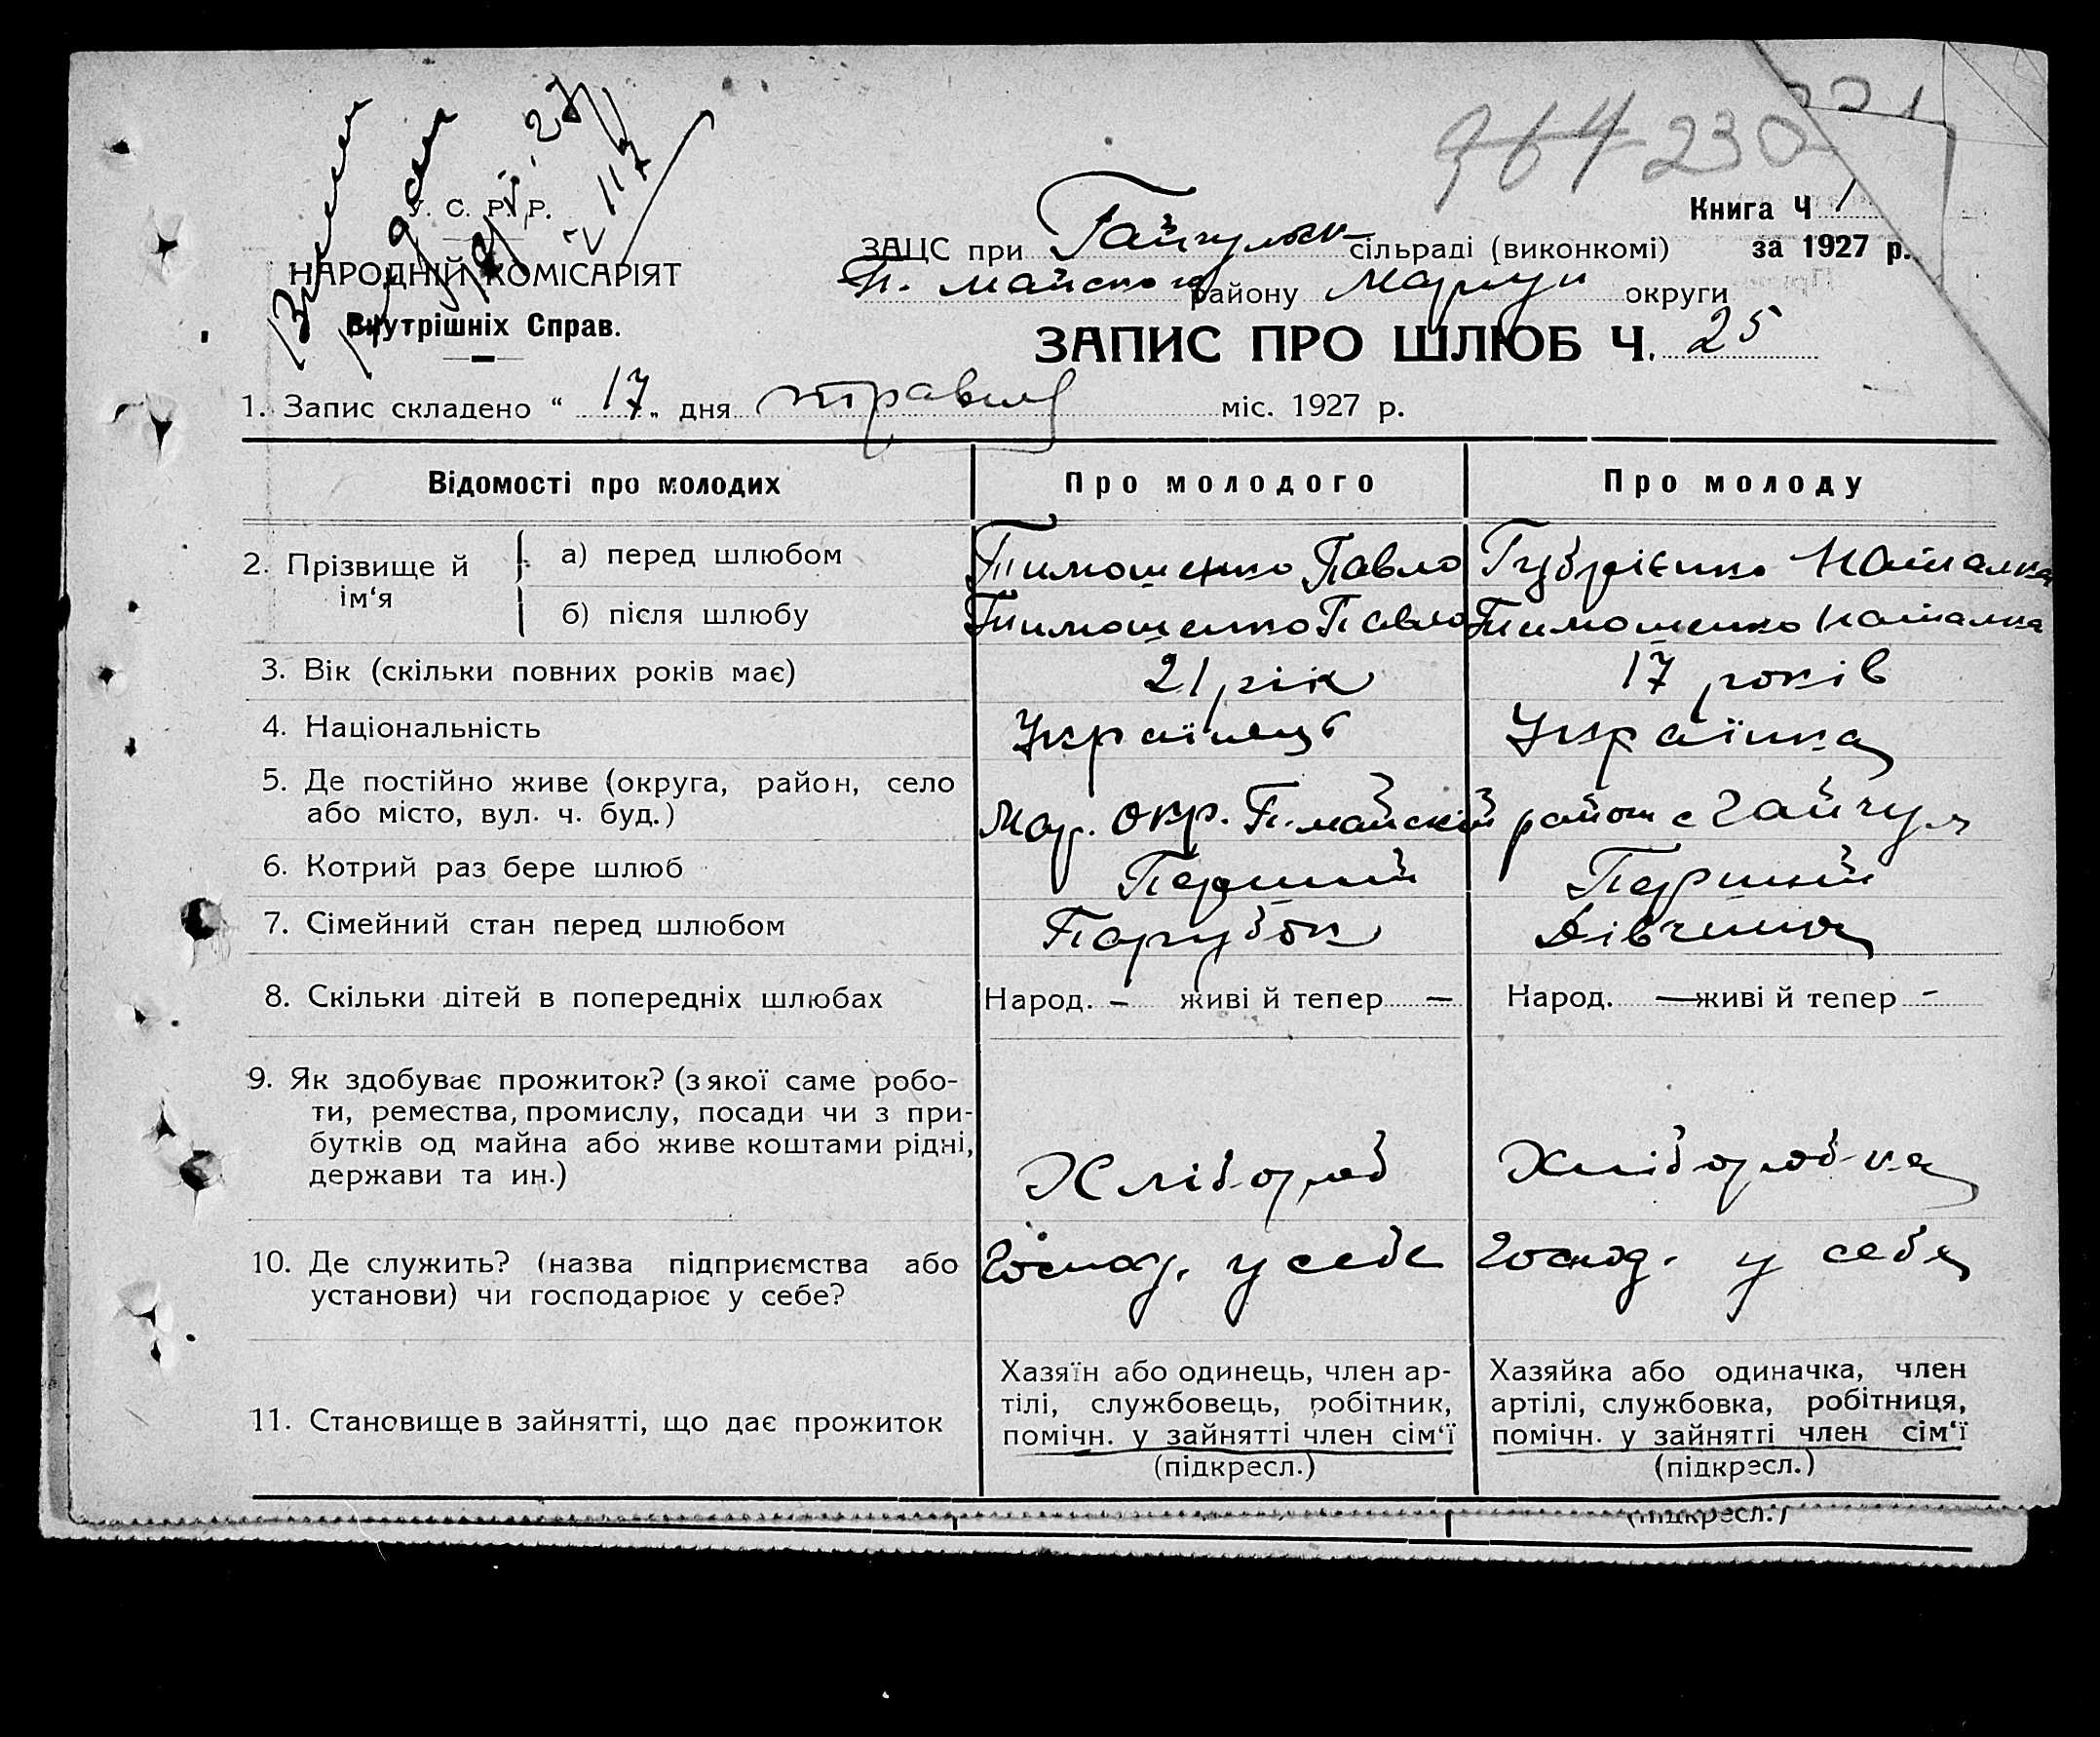 964 230
У. С. Р. Р.
НАРОДНІЙ КОМІСАРІЯТ
Внутрішніх Справ.
Книга Ч 1
за 1927 р.
ЗАЦС при Гайчульск сільраді (виконкомі)
П. майского району Маріуп округи
ЗАПИС ПРО ШЛЮБ Ч. 25
1. Запис складено “ 17 „ дня травня міс. 1927 р.
Відомості про молодих Про молодого Про молоду
2. Прізвище й ім‘я
а) перед шлюбом Тимошенко Павло Губрієнко Наталка
б) після шлюбу Тимошенко Павло Тимошенко Наталка
3. Вік (скільки повних років має) 21 рік 17 років
4. Національність Українець Українка
5. Де постійно живе (округа, район, село
або місто, вул. ч. буд.) Мар. окр. П. майский район с Гайчул
6. Котрий раз бере шлюб Перший Перший
7. Сімейний стан перед шлюбом Парубок Дівчина
8. Скільки дітей в попередніх шлюбах Народ. – живі й тепер — Народ. — живі й тепер –
9. Як здобуває прожиток? (з якої саме робо-
ти, ремества, промислу, посади чи з при-
бутків од майна або живе коштами рідні,
держави та ин.) Хлібороб Хліборобка
10. Де служить? (назва підприємства або
установи) чи господарює у себе? Господ. у себе Господ. у себя
11. Становище в зайнятті, що дає прожиток
Хазяїн або одинець, член ар-
тілі, службовець, робітник,
помічн. у зайнятті член сім‘ї
(підкресл.)
Хазяйка або одиначка, член
артілі, службовка, робітниця,
помічн. у зайнятті член сім‘ї
(підкресл.)
(підкресл.)